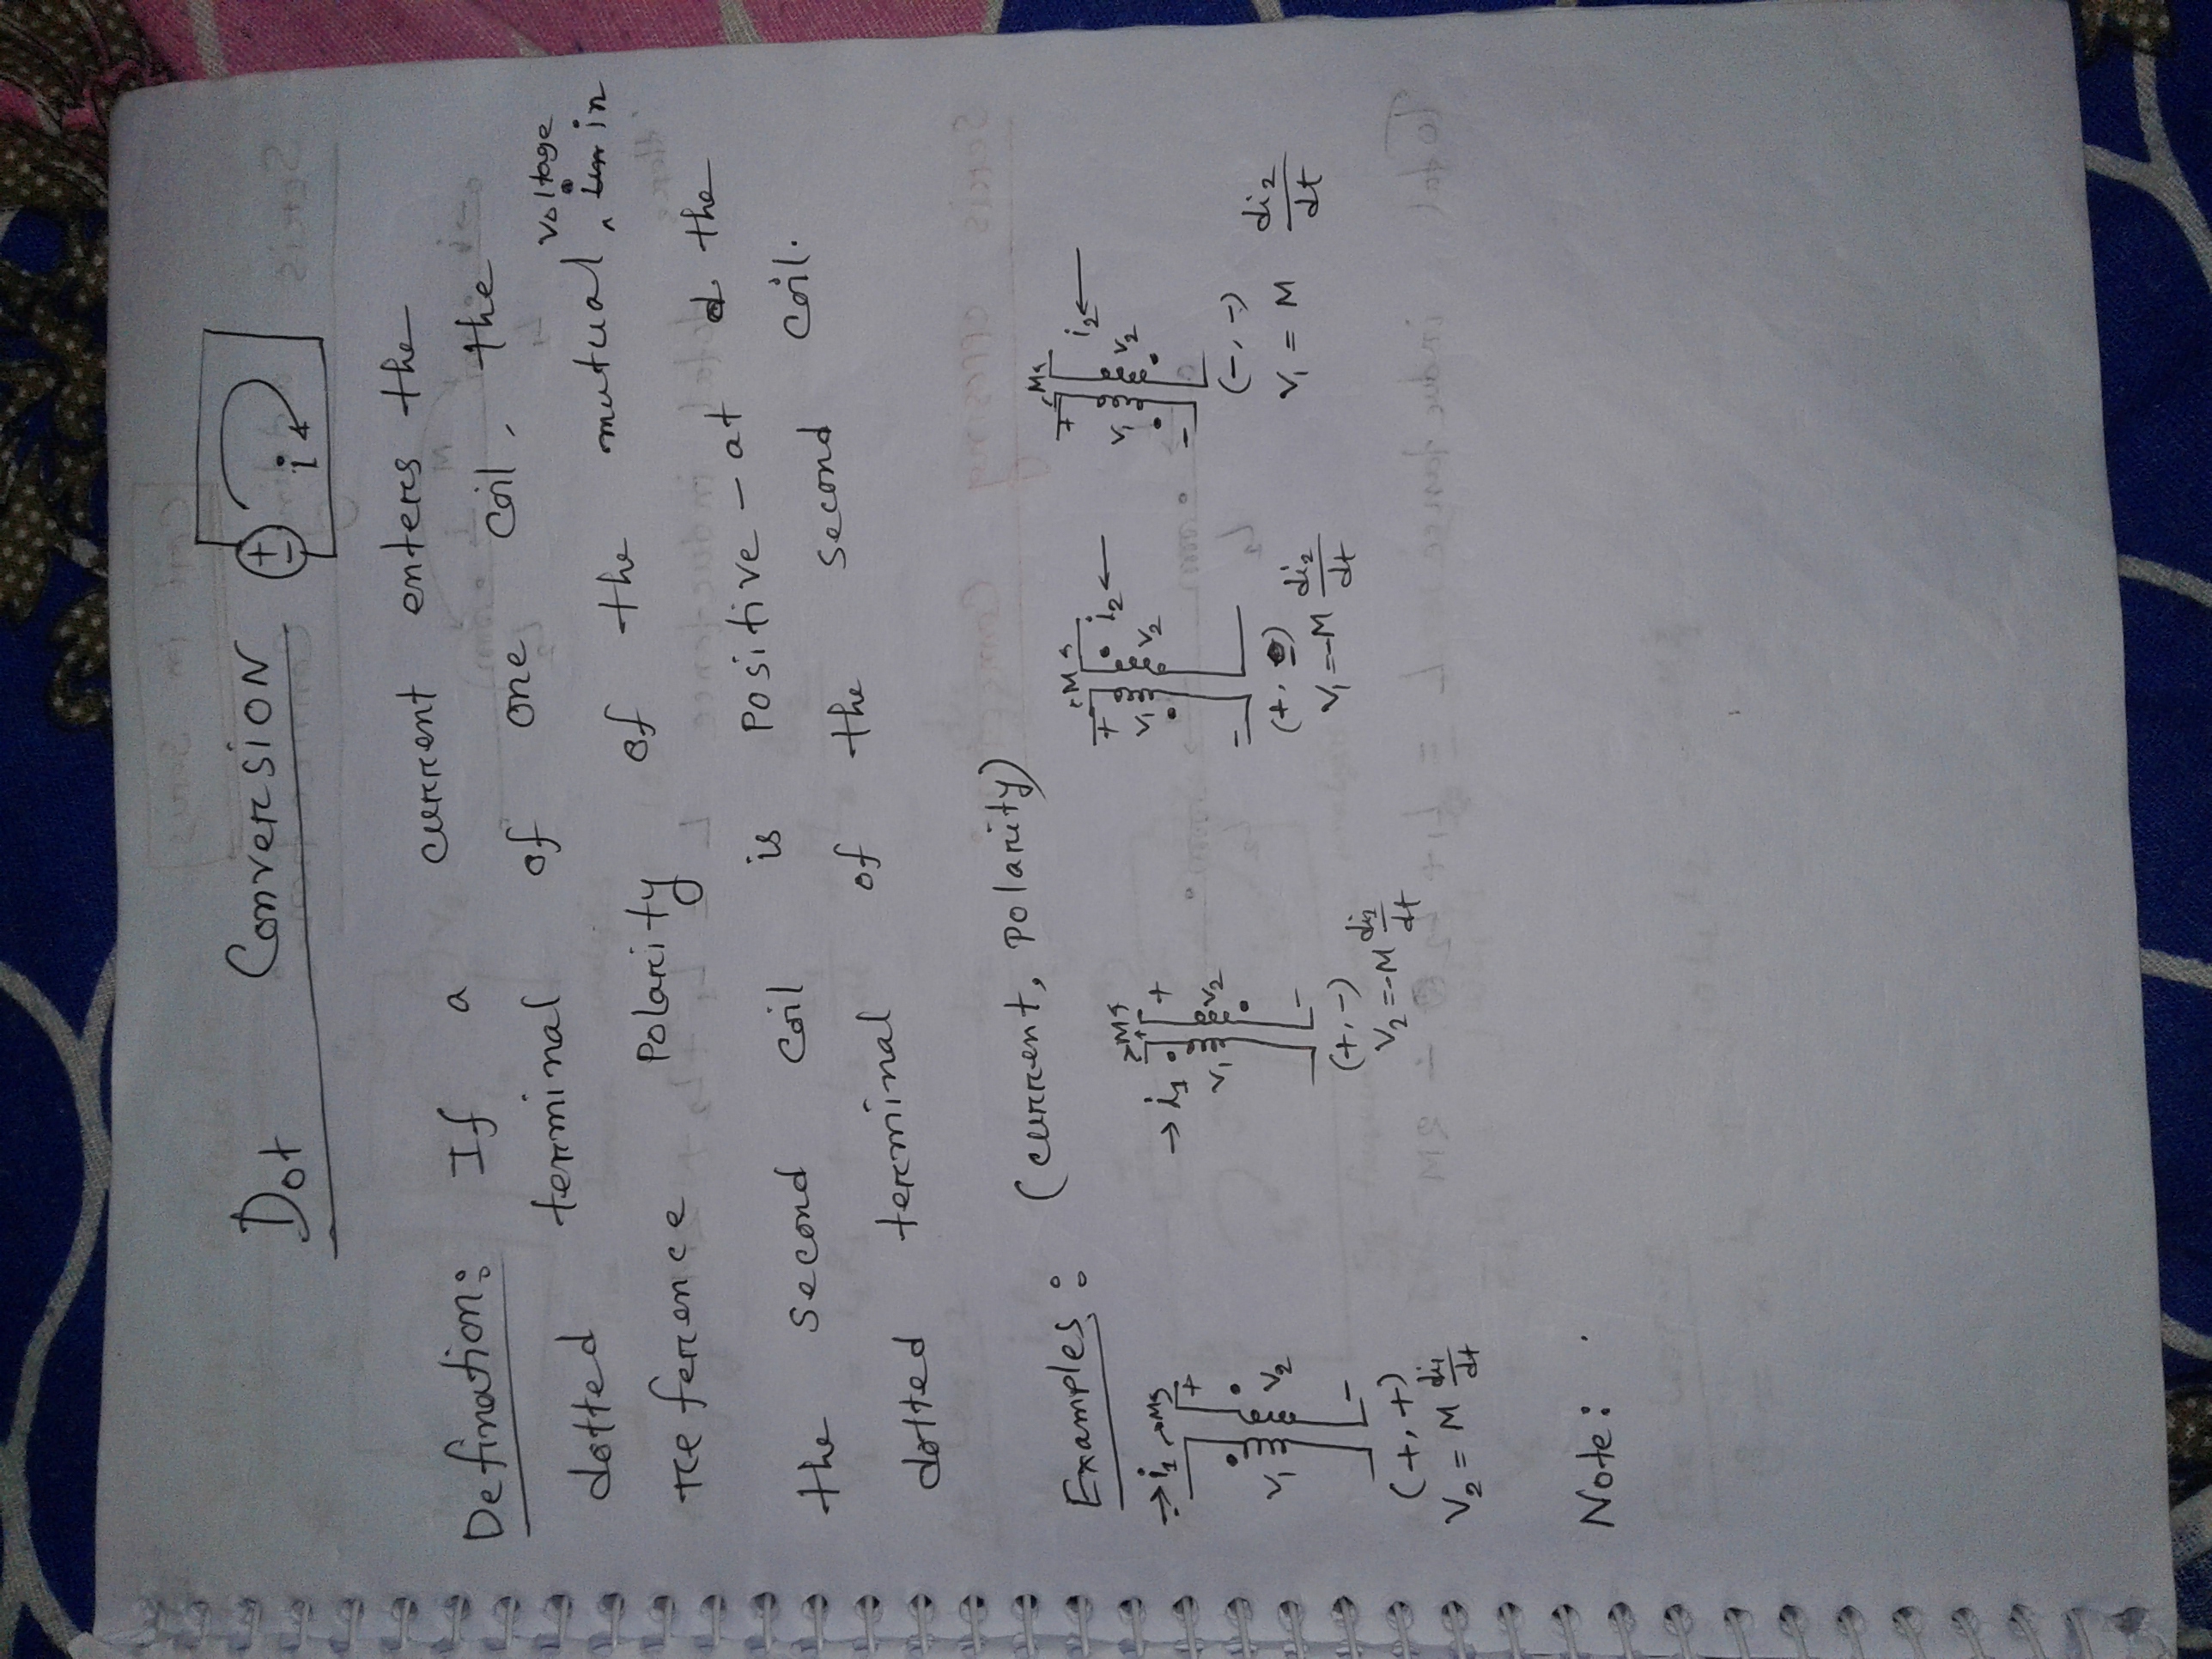 Dot Conversion
+
-
i
Defination: If a current enters the
dotted terminal of one coil, the
reference Polarity of the mutual voltage in
the second coil is Positive - at the
dotted terminal of the second coil.
Examples: (current, Polarity)
i1 M + V1 V2 -
(+, +)
V2 = M di1/dt
i1 M + V1 V2 -
(+, -)
V2 = -M di1/dt
M + i2 V1 V2 -
(+, )
V1 = -M di2/dt
M + i2 V1 V2 -
(-, -)
V1 = M di2/dt
Note: